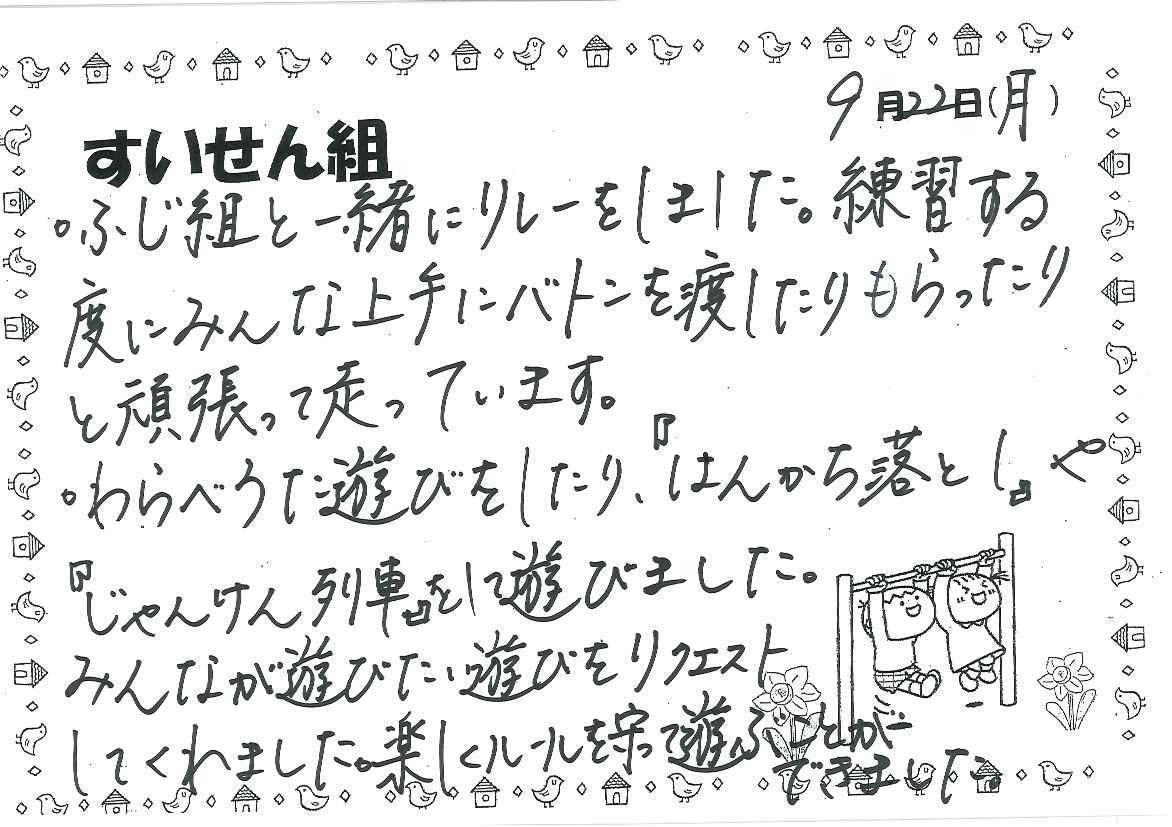 9月22日(月)
すいせん組
○ふじ組と一緒にリレーをしました。練習する
度にみんな上手にバトンを渡したりもらったり
と頑張って走っています。
○わらべうた遊びをしたり、『はんかち落とし』や
『じゃんけん列車』をして遊びました。
みんなが遊びたい遊びをリクエスト
してくれました。楽しくルールを守って遊ぶことが
できました。